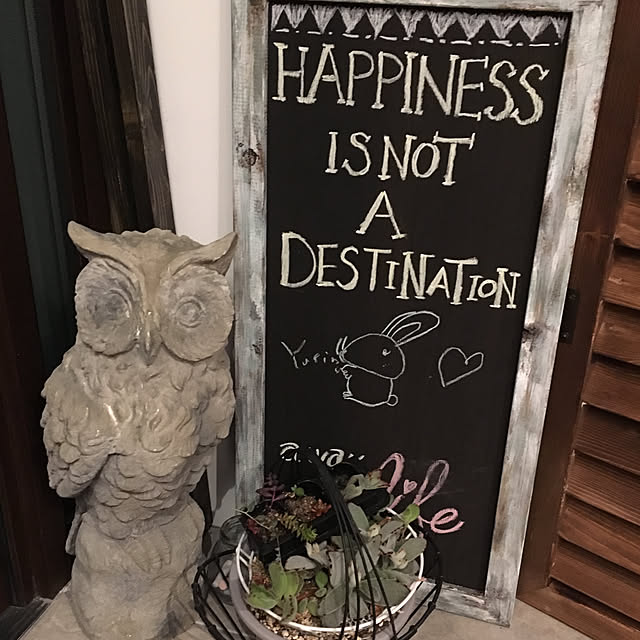 HAPPINESS
IS NOT
A
DESTINATION